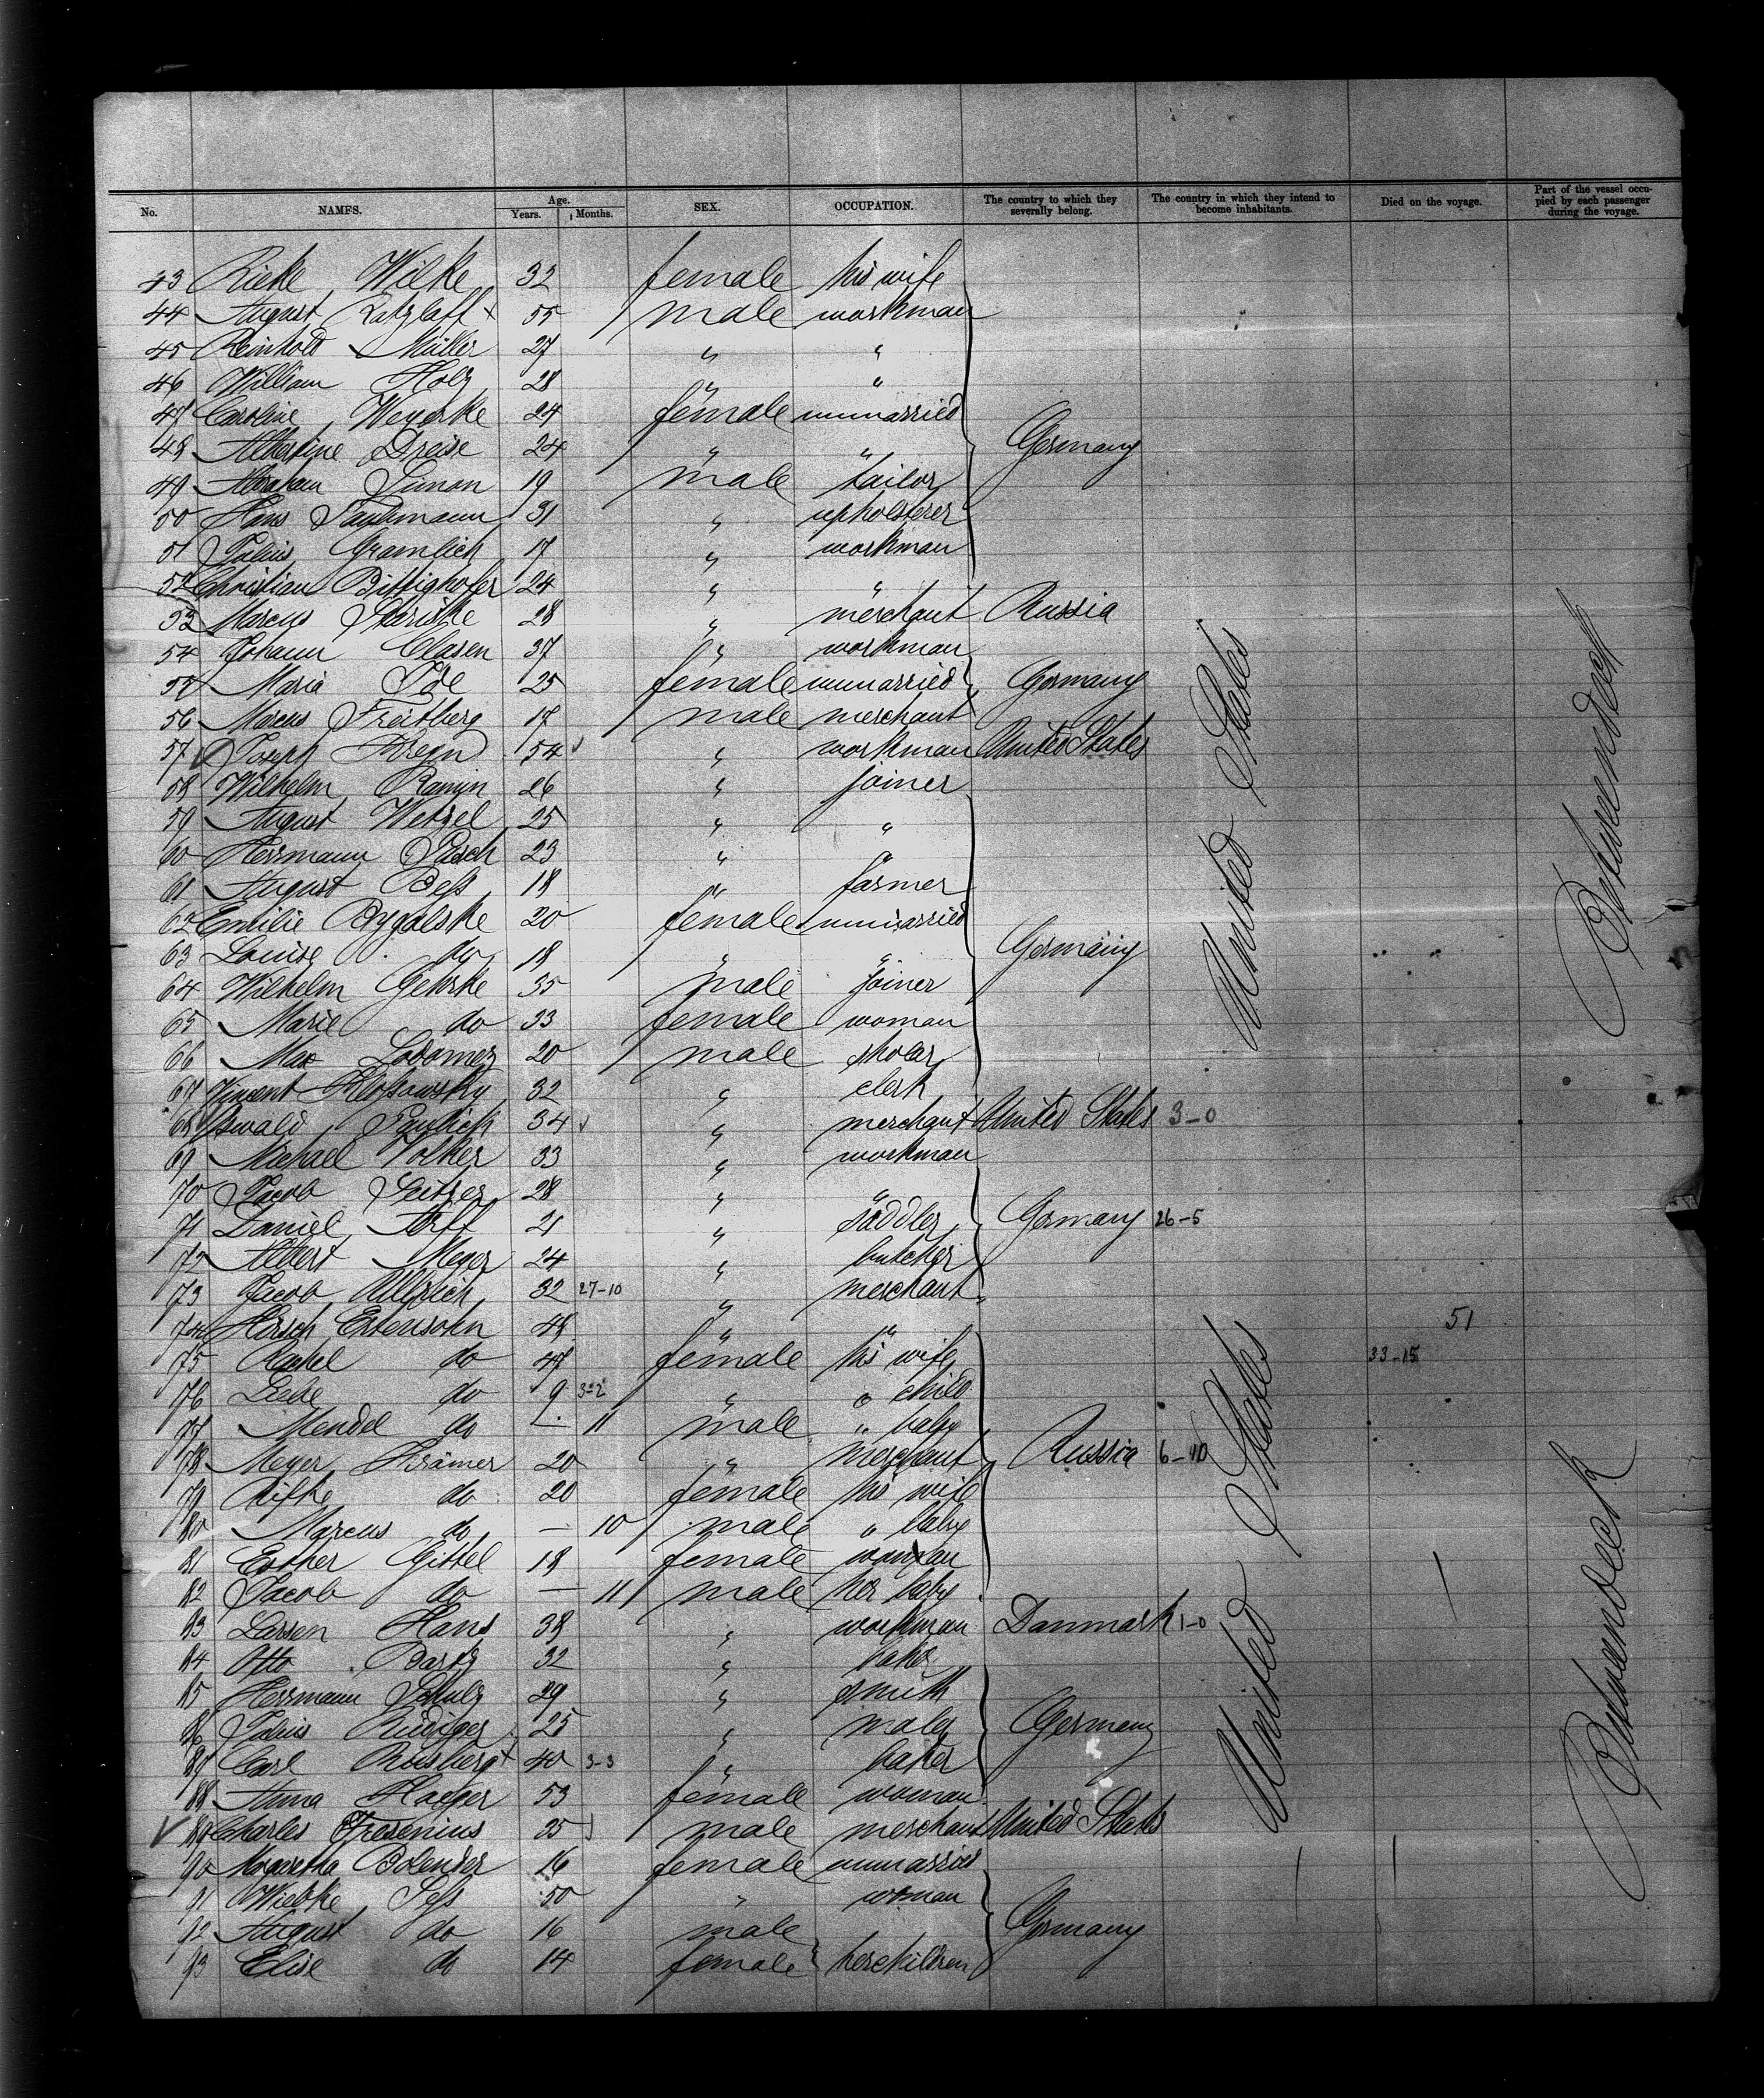 No. NAMES. Age. Years. Months. SEX. OCCUPATION. The country to which they severally belong. The country in which they intend to become inhabitants. Died on the voyage. Part of the vessel occupied by each passenger during the voyage.
43 Rieke Wilke 32 female his wife
44 August Ratzlaff x 55 male workman
45 Reinhold Müller 27 " "
46 William Holz 28 " "
47 Caroline 24 female unmarried
48 Albertine Dreise 24 " " Germany
49 Abraham Simon 19 male tailor
50 Hans 31 " upholsterer
51 Julius Gramlich 17 " workman
52 Christian Bittighofer 24 " "
53 Marcus 28 " merchant Russia
54 Johann Clasen 37 " workman
55 Maria Ide 25 female unmarried Germany
56 Marcus Freitberg 17 male merchant
57 Joseph 54 " workman United States
58 Wilhelm 26 " joiner
59 August Wetzel 25 " "
60 Herrmann Pasch 23 " "
61 August Beß 18 " farmer
62 Emilie Rygalske 20 female unmarried
63 Louise do 18 " " Germany
64 Wilhelm Gehrke 35 male joiner
65 Marie do 33 female woman
66 Max 20 male
67 Vincent Kloßowsky 32 " clerk
68 Oswald Paulick 34 " merchant United States 3-0
69 Michael Volker 33 " workman
70 Jacob Seitzer 28 " "
71 Daniel 21 " saddler Germany 26-5
72 Albert Meyer 24 " butcher
73 Jacob Ullrich 32 27-10 " merchant
74 Hirsch 48 " " 51
75 Rachel do 47 female his wife 33-15
76 do 9 3-2 " " child
77 Mendel do — 11 male " baby
78 Meyer Krämer 20 " merchant Russia 6-10
79 Rifke do 20 female his wife
80 Marcus do — 10 male " baby
81 Esther Gittel 18 female woman
82 Jacob do — 11 male her baby
83 Larsen Hans 38 " workman Danmark 1-0
84 Otto Bartz 32 "
85 Herrmann Schulz 29 " smith
86 Julius Rüdiger 25 " Germany
87 Carl x 40 3-3 " baker
88 Anna Haeger 53 female woman
89 Charles Fresenius 25 male merchant United States
90 Margaretha Bolender 16 female unmarried
91 Wiebke 50 " woman
92 August do 16 male Germany
93 Elise do 14 female her children
United States
United States
Betweendeck
Betweendeck